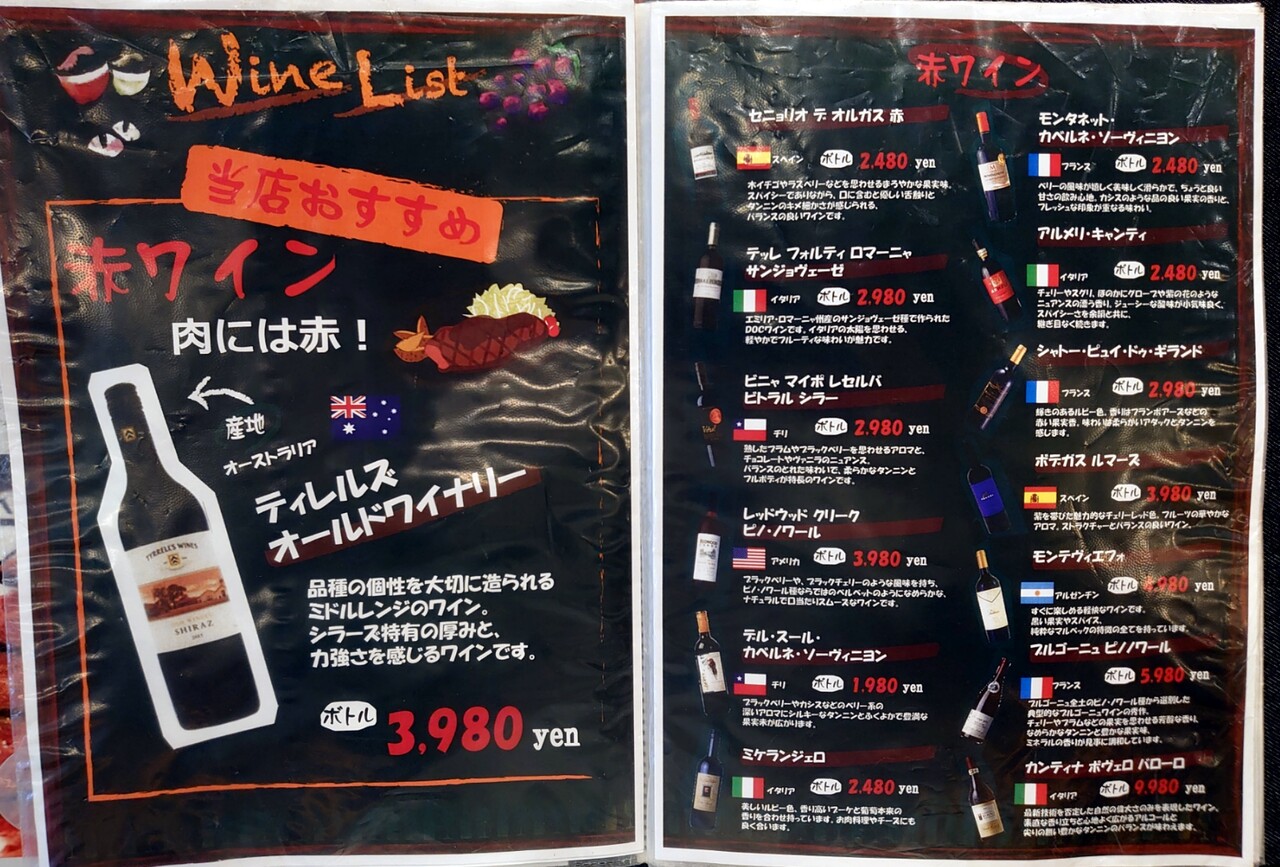 Wine List
当店おすすめ
赤ワイン
肉には赤！
産地
オーストラリア
ティレルズ
オールドワイナリー
TYRRELL'S WINES
SHIRAZ
2007
品種の個性を大切に造られる
ミドルレンジのワイン。
シラーズ特有の厚みと、
力強さを感じるワインです。
ボトル 3,980 yen
赤ワイン
セニョリオ デ オルガス 赤
スペイン ボトル 2.480 yen
木イチゴやラズベリーなどを思わせるまろやかな果実味。
スパイシーでありながら、口に含むと優しい舌触りと
タンニンのキメ細かさが感じられる、
バランスの良いワインです。
テッレ フォルティ ロマーニャ
サンジョヴェーゼ
イタリア ボトル 2.980 yen
エミリア・ロマーニャ州産のサンジョヴェーゼ種で作られた
DOCワインです。イタリアの太陽を思わせる、
軽やかでフルーティな味わいが魅力です。
ビニャ マイポ レセルバ
ビトラル シラー
チリ ボトル 2.980 yen
熟したプラムやブラックベリーを思わせるアロマと、
チョコレートやヴァニラのニュアンス。
バランスのとれた味わいで、柔らかなタンニンと
フルボディが特長のワインです。
レッドウッド クリーク
ピノ・ノワール
アメリカ ボトル 3.980 yen
ブラックベリーや、ブラックチェリーのような風味を持ち、
ピノ・ノワール種ならではのベルベットのようになめらかな、
ナチュラルで口当たりスムースなワインです。
デル・スール・
カベルネ・ソーヴィニヨン
チリ ボトル 1.980 yen
ブラックベリーやカシスなどのベリー系の
深いアロマにシルキーなタンニンとふくよかで豊満な
果実味が広がります。
ミケランジェロ
イタリア ボトル 2.480 yen
美しいルビー色、香り高いブーケと葡萄本来の
香りを合わせ持っています。お肉料理やチーズにも
良く合います。
モンタネット・
カベルネ・ソーヴィニヨン
フランス ボトル 2.480 yen
ベリーの風味が嬉しく美味しく滑らかで、ちょうど良い
甘さの飲み心地、カシスのような品の良い果実の香りと、
フレッシュな印象が重なる味わい。
アルメリ・キャンティ
イタリア ボトル 2.480 yen
チェリーやスグリ、ほのかにグローブや紫の花のような
ニュアンスの漂う香り。ジューシーな酸味が小気味良く、
スパイシーさを余韻と共に、
継ぎ目なく続きます。
シャトー・ピュイ・ドゥ・ギランド
フランス ボトル 2.980 yen
輝きのあるルビー色、香りはフランボアーズなどの
赤い果実香、味わいは柔らかいアタックとタンニンを
感じます。
ボデガス ルマーズ
スペイン ボトル 3.980 yen
紫を帯びた魅力的なチェリーレッド色、フルーツの華やかな
アロマ、ストラクチャーとバランスの良いワイン。
モンテヴィエフォ
アルゼンチン ボトル 4.980 yen
すぐに楽しめる軽快なワインです。
黒い果実やスパイス、
純粋なマルベックの特徴の全てを持っています。
ブルゴーニュ ピノノワール
フランス ボトル 5.980 yen
ブルゴーニュ全土のピノ・ノワール種から選別した
典型的なブルゴーニュワインの秀作。
チェリーやプラムなどの果実を思わせる芳醇な香り、
なめらかなタンニンと豊かな果実味、
ミネラルの香りが見事に調和しています。
カンティナ ポヴェロ バローロ
イタリア ボトル 9.980 yen
最新技術を否定した自然の偉大さのみを表現したワイン、
素直な香り立ちと心地よく広がるアルコールと
尖りの無い豊かなタンニンのバランスが味わえます。